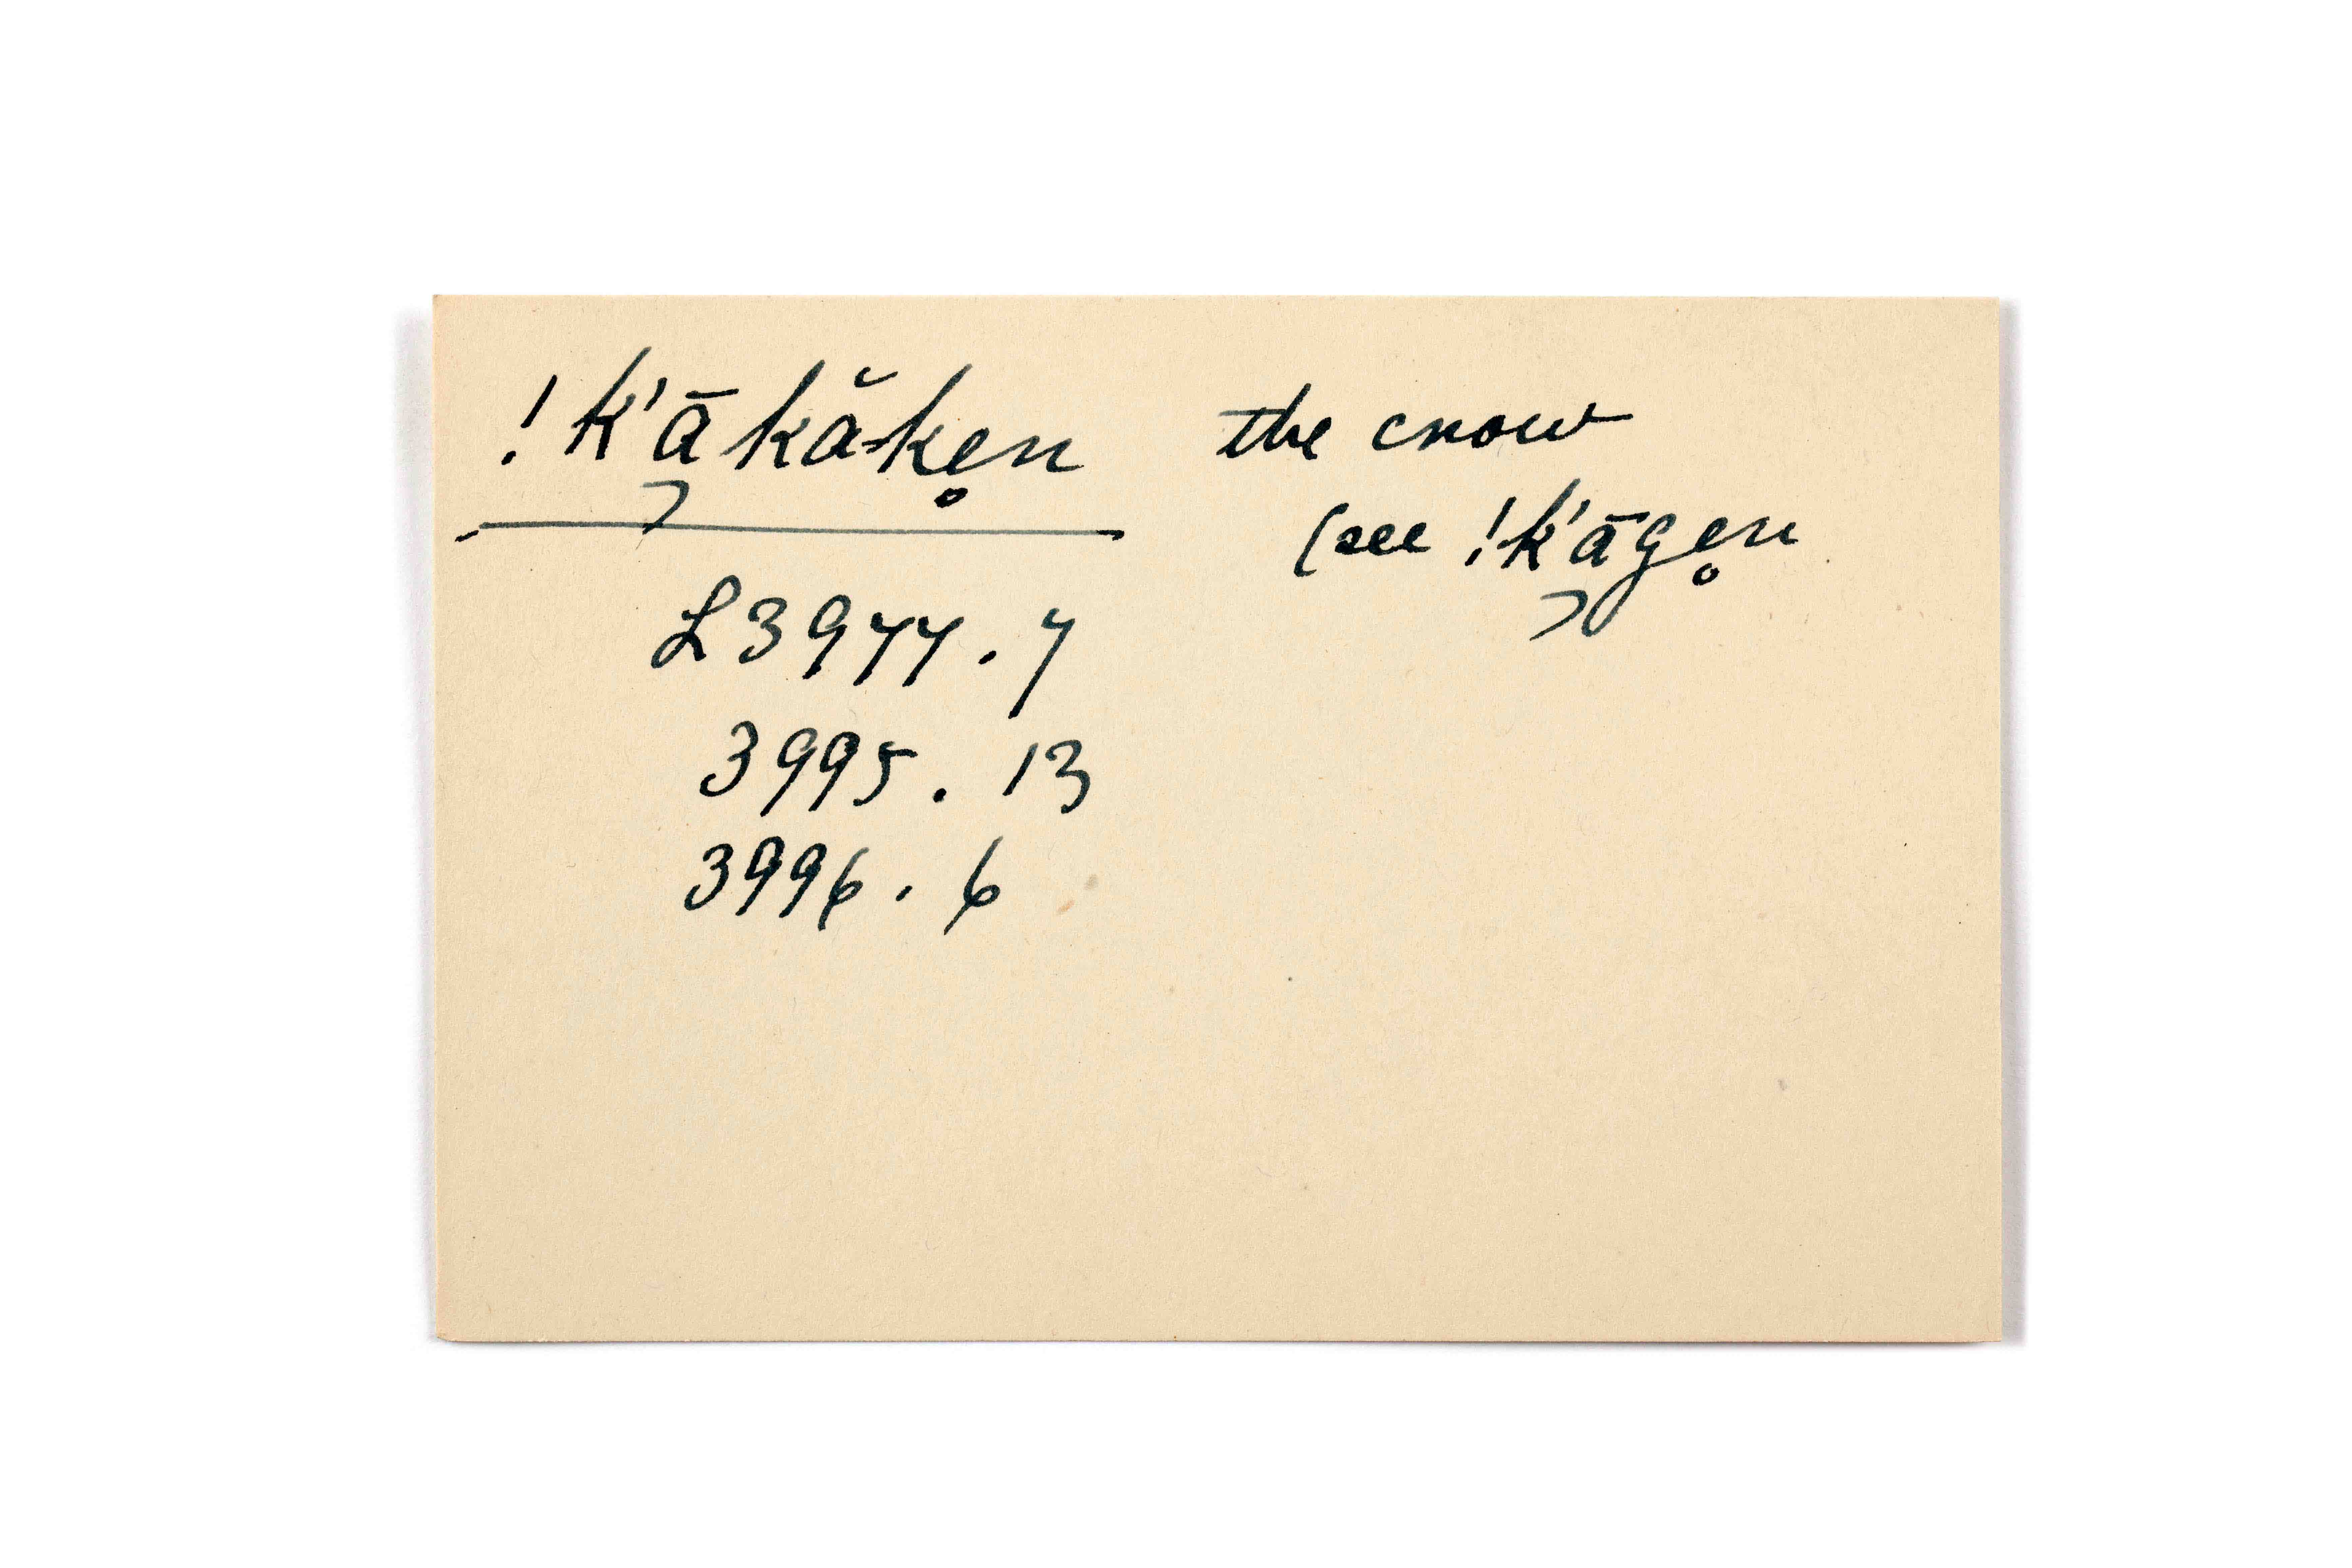 !k'ā̦kăke̥n the crow
(see !k'ā̦ge̥n
L3977.7
3995.13
3996.6